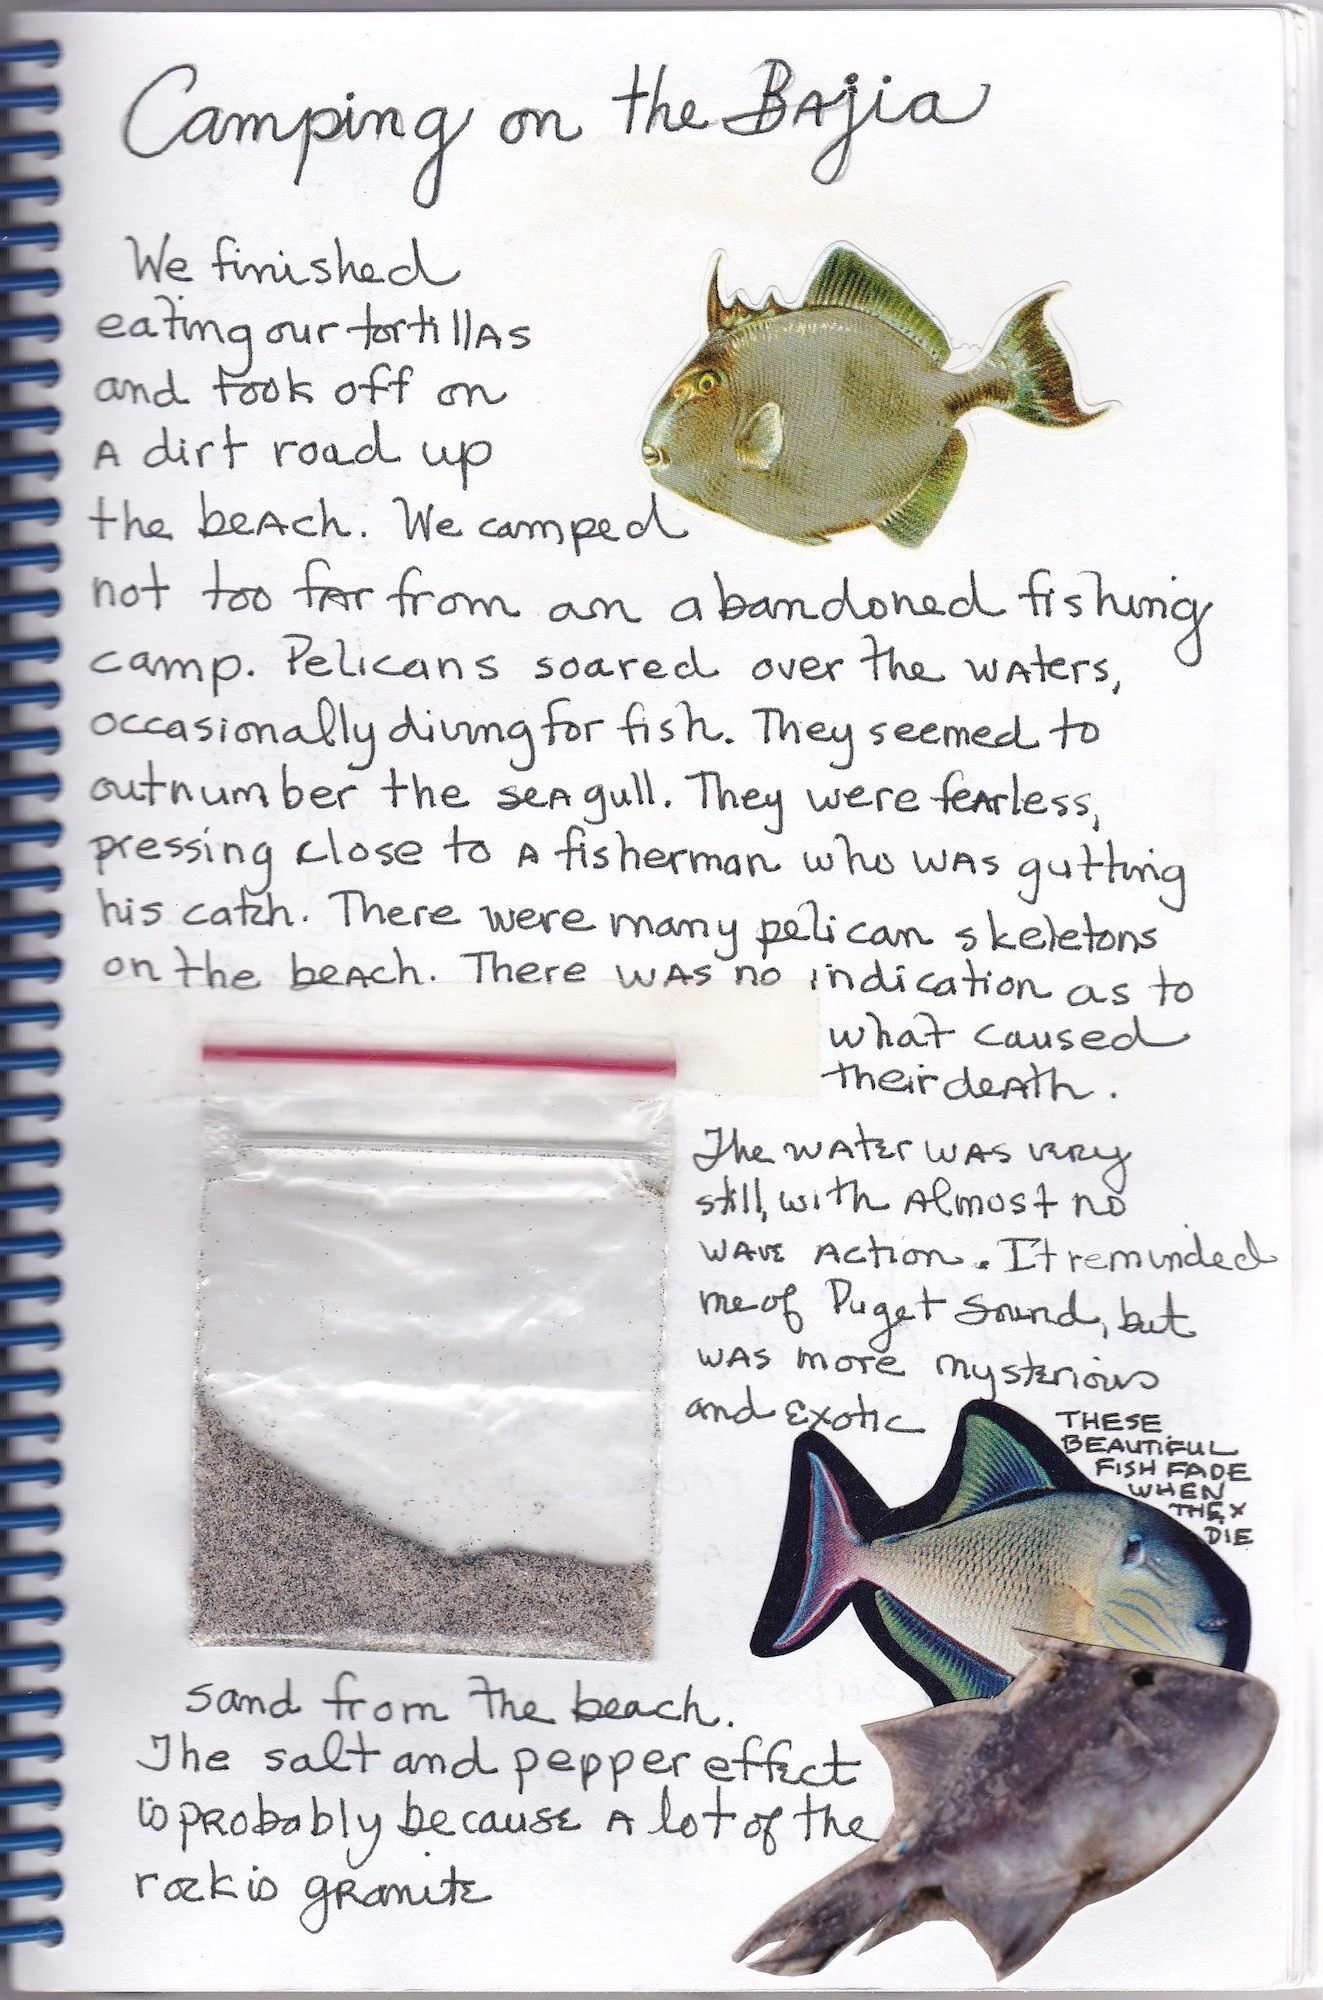 Camping on the Bajia
We finished
eating our tortillas
and took off on
a dirt road up
the beach. We camped
not too far from an abandoned fishing
camp. Pelicans soared over the waters,
occasionally diving for fish. They seemed to
outnumber the sea gull. They were fearless,
pressing close to a fisherman who was gutting
his catch. There were many pelican skeletons
on the beach. There was no indication as to
what caused
their death.
The water was very
still, with almost no
wave action. It reminded
me of Puget Sound, but
was more mysterious
and exotic
THESE
BEAUTIFUL
FISH FADE
WHEN
THEY
DIE
sand from the beach.
The salt and pepper effect
is probably because a lot of the
rock is granite